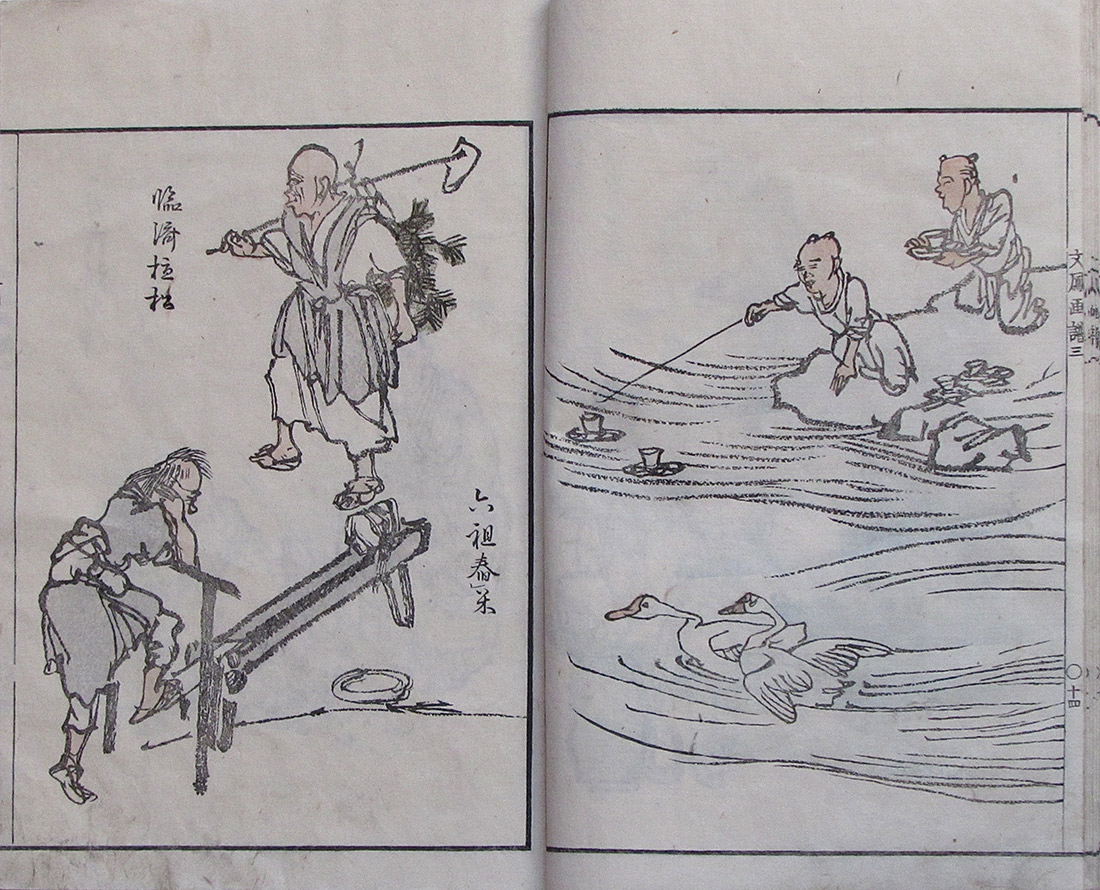 文鳳画譜三
〇十四
六祖舂米
臨濟植松